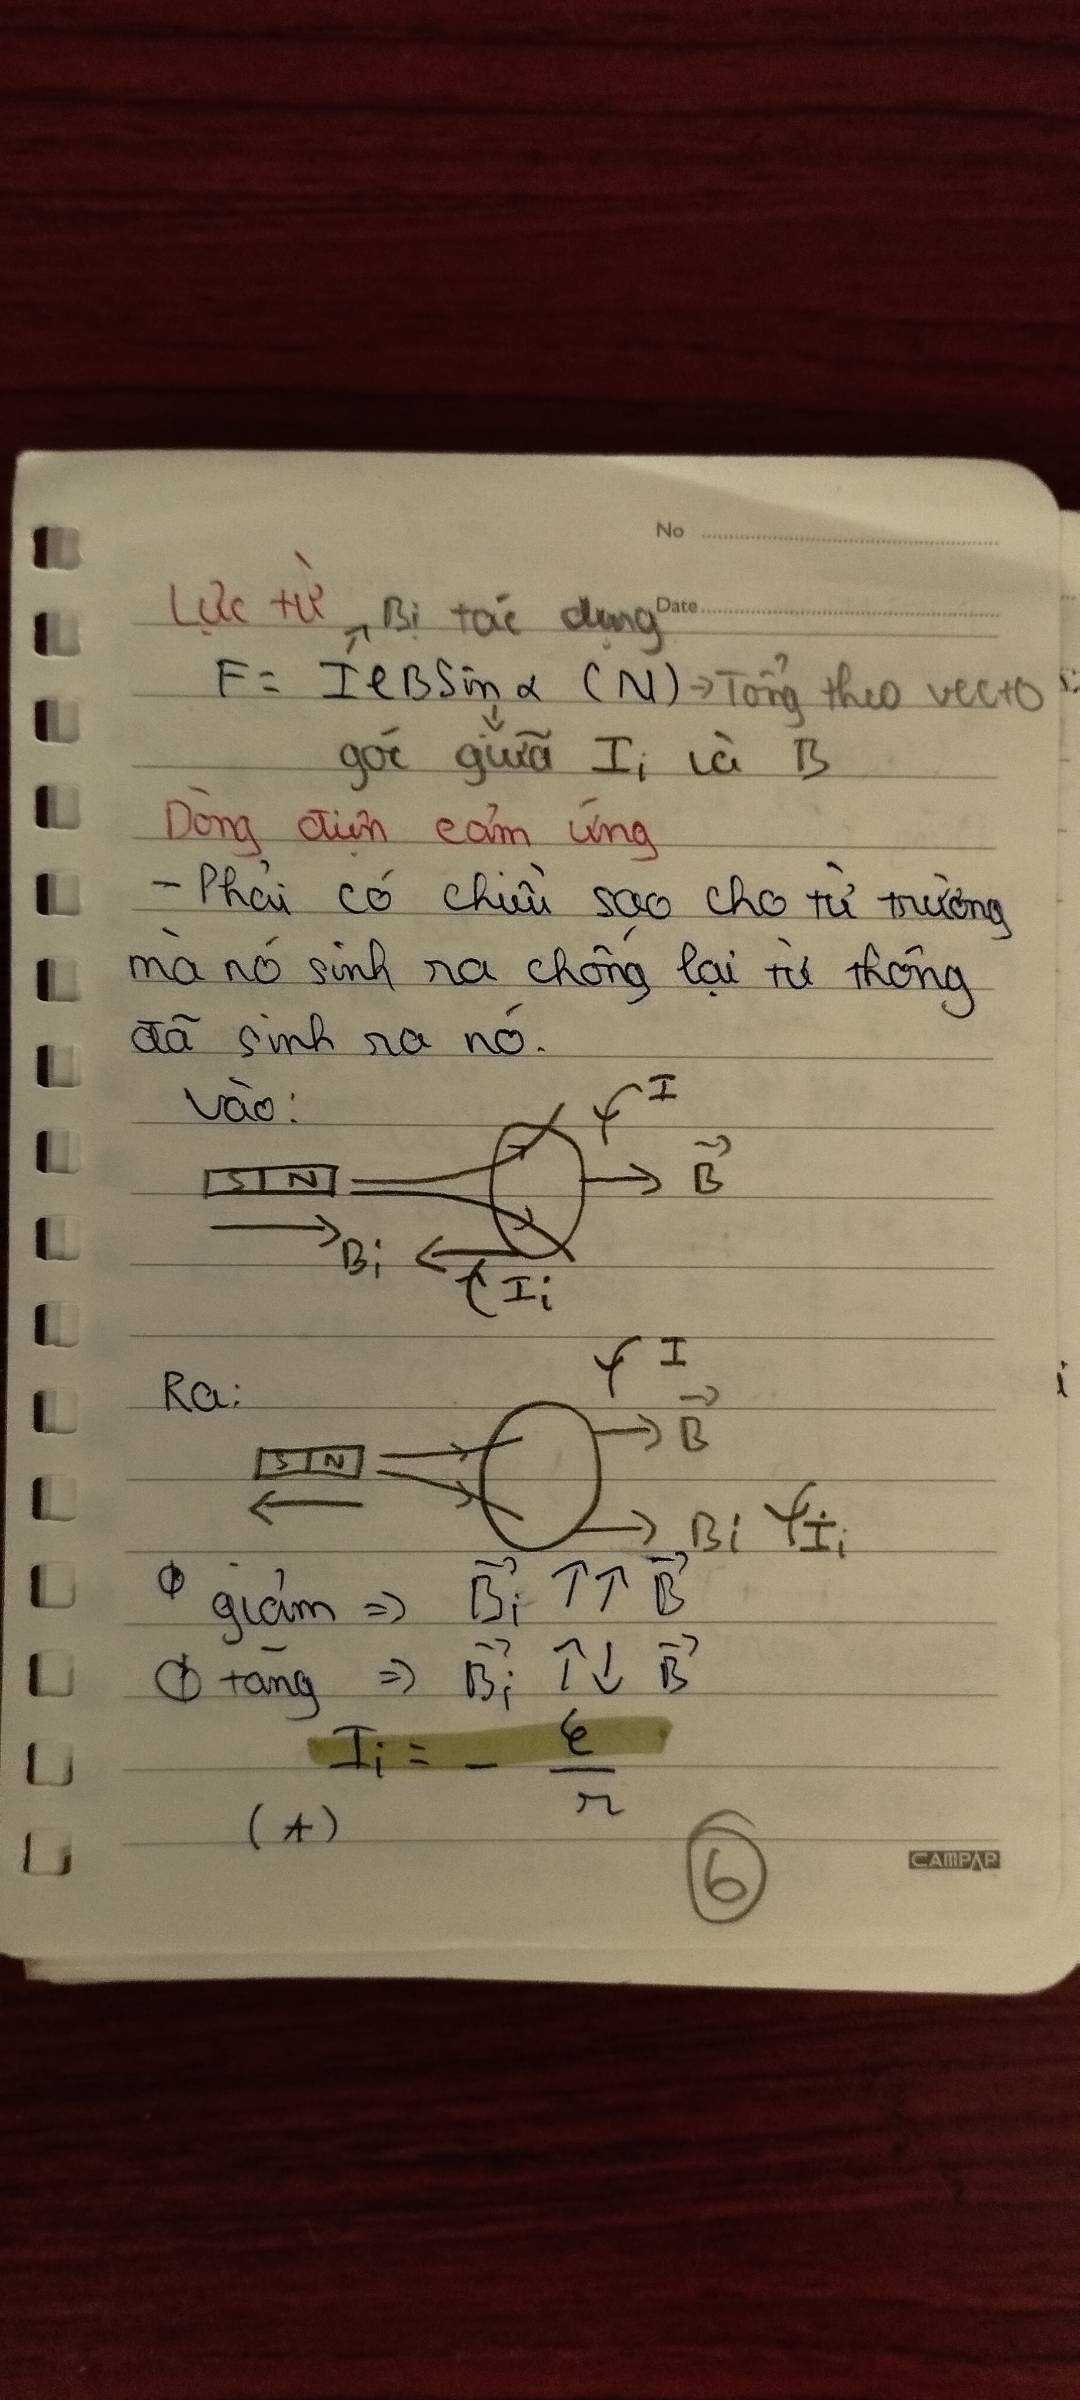 No
Date
Lực từ
Bị tác dụng
F = IlBSinα (N) → Tổng theo vectơ
góc giữa Ii và B
Dòng điện cảm ứng
- Phải có chiều sao cho từ trường
mà nó sinh ra chống lại từ thông
đã sinh ra nó.
Vào:
I
S N
B
Bi
Ii
Ra:
I
S N
B
Bi Ii
Φ giảm => Bi ↑↑ B
Φ tăng => Bi ↑↓ B
Ii = - ε/r
(*)
6
CAMPAP